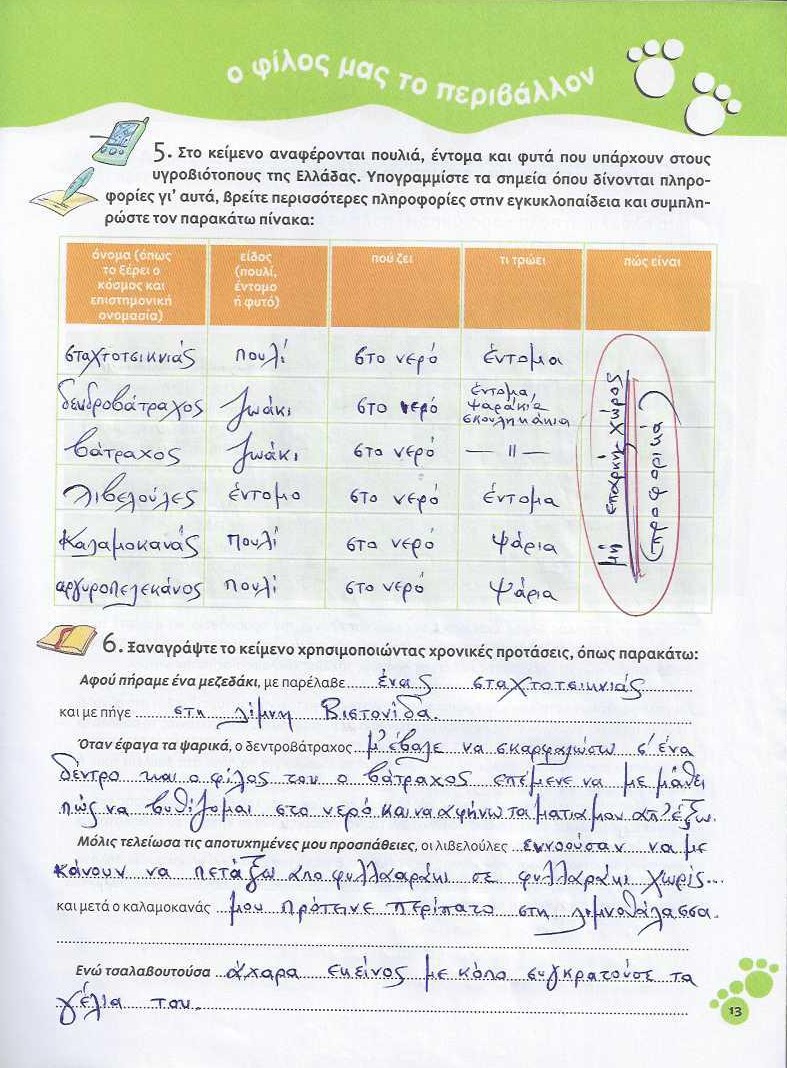 ο φίλος μας το περιβάλλον
5. Στο κείμενο αναφέρονται πουλιά, έντομα και φυτά που υπάρχουν στους
υγροβιότοπους της Ελλάδας. Υπογραμμίστε τα σημεία όπου δίνονται πληρο-
φορίες γι' αυτά, βρείτε περισσότερες πληροφορίες στην εγκυκλοπαίδεια και συμπλη-
ρώστε τον παρακάτω πίνακα:
όνομα (όπως το ξέρει ο κόσμος και επιστημονική ονομασία) είδος (πουλί, έντομο ή φυτό) πού ζει τι τρώει πώς είναι
σταχτοτσικνιάς πουλί στο νερό έντομα
δενδροβάτραχος ζωάκι στο νερό έντομα, ψαράκια σκουληκάκια
βάτραχος ζωάκι στο νερό — || —
λιβελούλες έντομο στο νερό έντομα
καλαμοκανάς πουλί στο νερό ψάρια
αργυροπελεκάνος πουλί στο νερό ψάρια
μη επαρκής χώρος
(προφορικά)
6. Ξαναγράψτε το κείμενο χρησιμοποιώντας χρονικές προτάσεις, όπως παρακάτω:
Αφού πήραμε ένα μεζεδάκι, με παρέλαβε ένας σταχτοτσικνιάς
και με πήγε στη λίμνη Βιστονίδα.
Όταν έφαγα τα ψαρικά, ο δεντροβάτραχος μ' έβαλε να σκαρφαλώσω σ' ένα
δέντρο και ο φίλος του ο βάτραχος επέμενε να με μάθει
πώς να βυθίζομαι στο νερό και να αφήνω τα ματια μου απ' έξω.
Μόλις τελείωσα τις αποτυχημένες μου προσπάθειες, οι λιβελούλες εννοούσαν να με
κάνουν να πετάξω απο φυλλαράκι σε φυλλαράκι χωρίς...
και μετά ο καλαμοκανάς μου πρότεινε περίπατο στη λιμνοθάλασσα.
Ενώ τσαλαβουτούσα άχαρα εκείνος με κόπο συγκρατούσε τα
γέλια του.
13